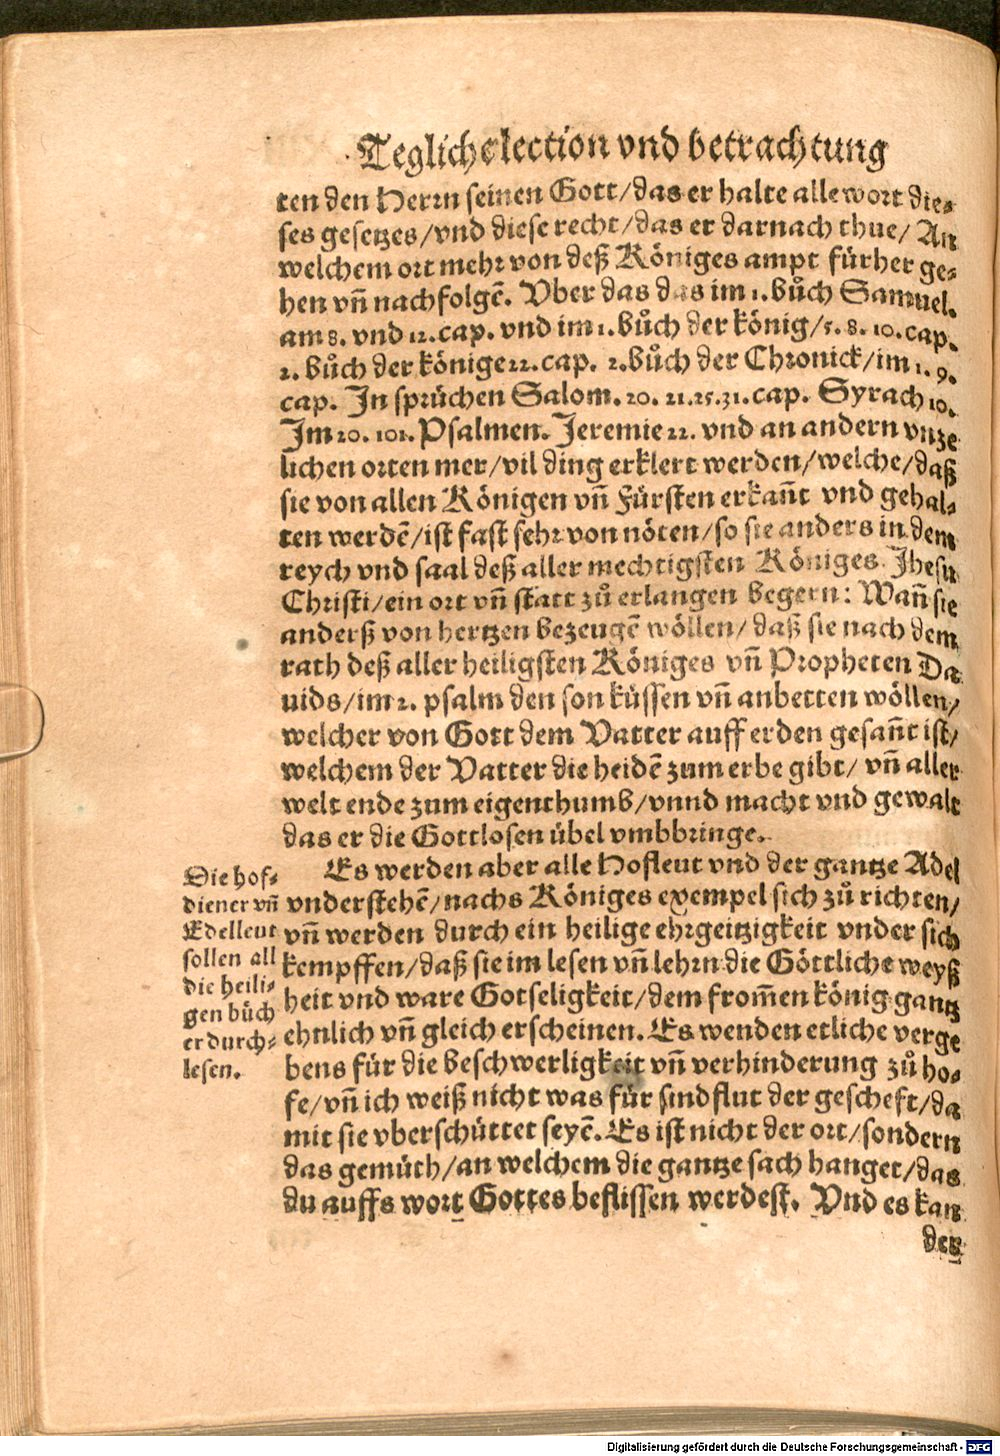 Teglich election vnd betrachtung
ten den Herrn seinen Gott/das er halte alle wort die-
ses gesetzes/vnd diese recht/das er darnach thue/ An
welchem ort mehr von deß Königes ampt fürher ge-
hen vñ nachfolgē. Vber das das im 1. bůch Samuel.
am 8. vnd 12. cap. vnd im 1. bůch der könig/5. 8. 10. cap.
2. bůch der könige 22. cap. 2. bůch der Chronick/im 1. 9.
cap. In sprüchen Salom. 20. 21. 25. 31. cap. Syrach 10.
Im 20. 101. Psalmen. Jeremie 22. vnd an andern vnze
lichen orten mer/vil ding erklert werden/welche/daß
sie von allen Königen vñ Fürsten erkañt vnd gehal-
ten werdē/ist fast sehr von nöten/so sie anders in dem
reych vnd saal deß aller mechtigsten Königes Jhesu
Christi/ein ort vñ statt zů erlangen begern: Wañ sie
anderß von hertzen bezeugē wöllen/ daß sie nach dem
rath deß aller heiligsten Königes vñ Propheten Da
uids/im 2. psalm den son küssen vñ anbetten wöllen/
welcher von Gott dem Vatter auff erden gesañt ist/
welchem der Vatter die heidē zum erbe gibt/ vñ aller
welt ende zum eigenthumb/vnnd macht vnd gewalt
das er die Gottlosen übel vmbbringe.
Es werden aber alle Hofleut vnd der gantze Adel
vnderstehē/nachs Königes exempel sich zů richten/
vñ werden durch ein heilige ehrgeitzigkeit vnder sich
kempffen/daß sie im lesen vñ lehrn die Göttliche weyß
heit vnd ware Gotseligkeit/dem from̃en könig gantz
ehnlich vñ gleich erscheinen. Es wenden etliche verge
bens für die beschwerligkeit vñ verhinderung zů ho-
fe/vñ ich weiß nicht was für sindflut der gescheft/da
mit sie vberschüttet seyē. Es ist nicht der ort/sondern
das gemüth/an welchem die gantze sach hanget/das
du auffs wort Gottes beflissen werdest. Vnd es kan
der
Die hof-
diener vñ
Edelleut
sollen all
die heili-
gen büch
er durch-
lesen.
Digitalisierung gefördert durch die Deutsche Forschungsgemeinschaft - DFG